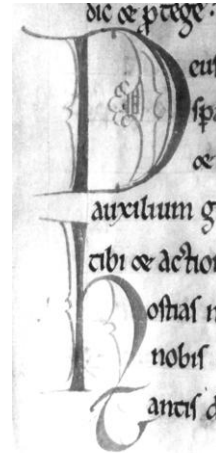 dic & ꝓtege ·
Deus
spa
&
auxilium g
tibi & action
Hostias n
nobis
Tantis d